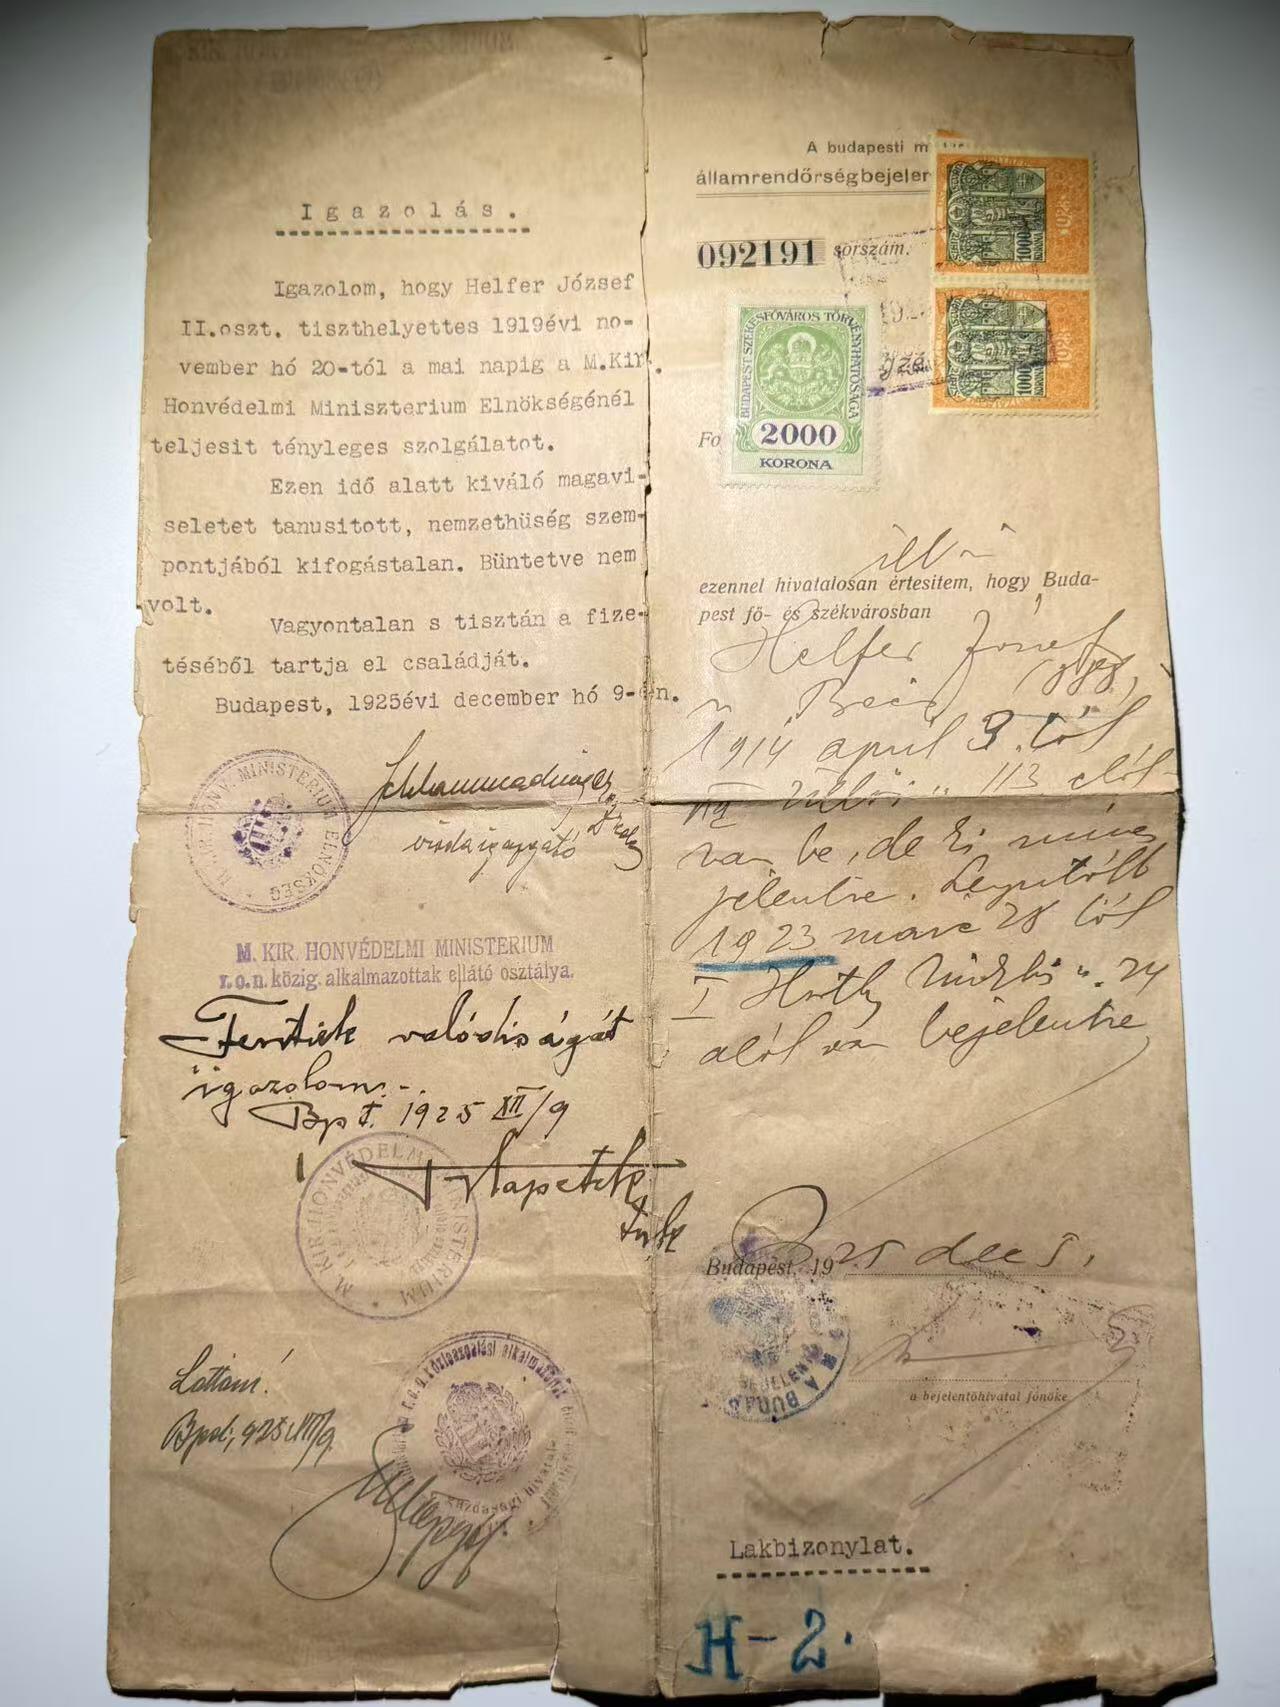 Igazolás.
Igazolom, hogy Helfer József
II.oszt. tiszthelyettes 1919évi no-
vember hó 20-tól a mai napig a M.Kir.
Honvédelmi Miniszterium Elnökségénél
teljesit tényleges szolgálatot.
Ezen idő alatt kiváló magavi-
seletet tanusitott, nemzethüség szem-
pontjából kifogástalan. Büntetve nem
volt.
Vagyontalan s tisztán a fize-
téséből tartja el családját.
Budapest, 1925évi december hó 9-én.
HONV. MINISTERIUM ELNÖKSÉG
irodaigazgató
M. KIR. HONVÉDELMI MINISTERIUM
r.o.n. közig. alkalmazottak ellátó osztálya.
Fentiek valódiságát
igazolom.-.
Bpt. 1925 XII/9
M. KIR. HONVÉDELMI MINISTERIUM
Láttam!
Bpest, 925 XII/9.
r.o.n. közigazgatási alkalmazottak
gazdasági hivatala
A budapesti m
államrendőrségbejelen
092191 sorszám.
1000
KORONA
1923
1000
KORONA
1923
BUDAPEST SZÉKESFŐVÁROS TÖRVÉNYHATÓSÁGA
2000
KORONA
Fo
ezennel hivatalosan értesitem, hogy Buda-
pest fő- és székvárosban
Helfer József
1914 april 3. tól
üllői u 113 alól
van be, de ki nincs
jelentve. Legutóbb
1923 marc 28 tól
I Horthy Miklós u. 24
alól van bejelentve
Budapest, 1925 dec 5.
a bejelentőhivatal főnöke
Lakbizonylat.
H-2.